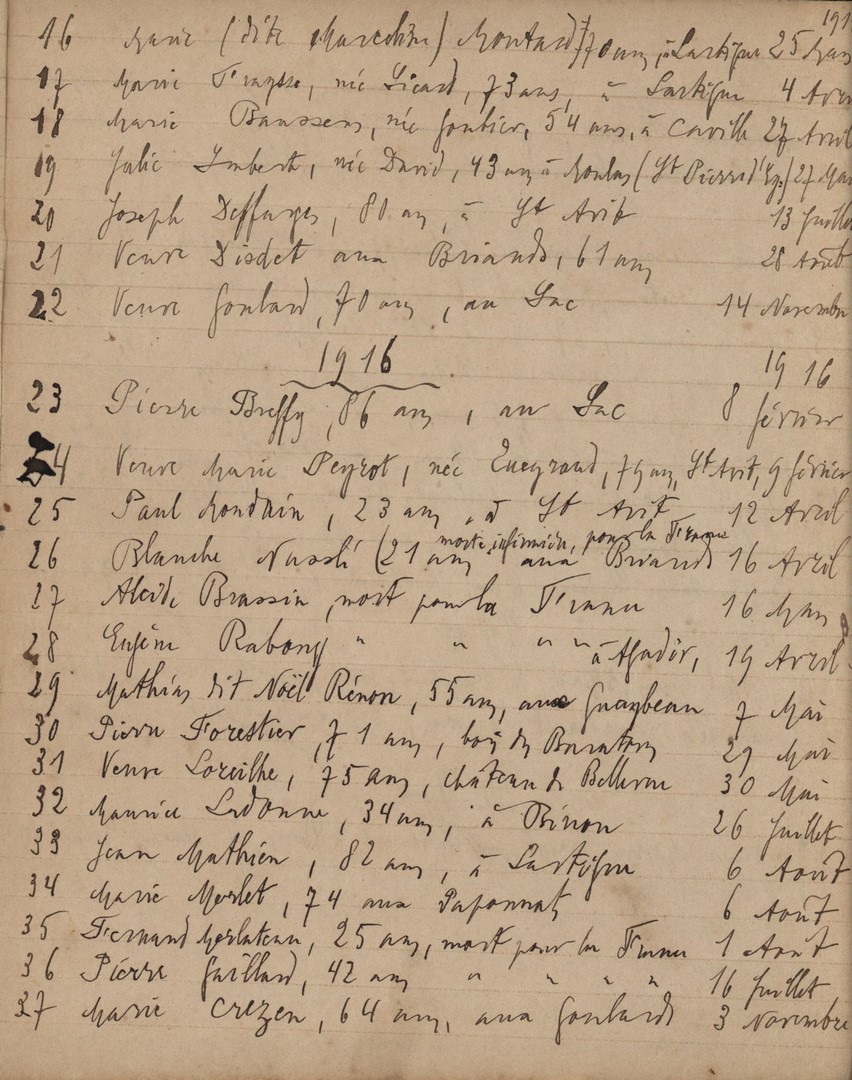 191
16 Marie (dite Marceline) Montard, 70 ans, à Lartigue 25 Mars
17 Marie Fraysse, née Sicard, 73 ans, à Lartigue 4 Avri
18 Marie Baussens, née Goubier, 54 ans, à Caville 27 Avril
19 Julie Imbert, née David, 43 ans à Moulas (St Pierre d'Ey.) 27 Mai
20 Joseph Deffarges, 80 ans, à St Avit 13 Juillet
21 Veuve Disdet aux Briands, 61 ans 28 Août
22 Veuve Goulard, 70 ans, au Lac 14 Novembre
1916 1916
23 Pierre Breffy, 86 ans, au Lac 8 février
24 Veuve Marie Peyrot, née 79 ans, St Avit, 9 février
25 Paul Mondain, 23 ans, à St Avit 12 Avril
morte infirmière, pour la France
26 Blanche (21 ans aux Briands 16 Avril
27 Alcide Brassin, mort pour la France 16 Mars
28 Eugène Rabouy " " " " à Agadir, 19 Avril
29 Mathias dit Noël Rénon, 55 ans, aux 7 Mai
30 Pierre Forestier, 71 ans, bois des 29 Mai
31 Veuve Loreilhe, 75 ans, château de Bellevue 30 Mai
32 Maurice Ladonne, 34 ans, à Binon 26 Juillet
33 Jean Mathieu, 82 ans, à Lartigue 6 Août
34 Marie Merlet, 74 aux Paponnats 6 Août
35 Fernand Merlateau, 25 ans, mort pour la France 1 Août
36 Pierre Gaillard, 42 ans " " " " 16 Juillet
37 Marie Crezen, 64 ans, aux Goulards 3 Novembre